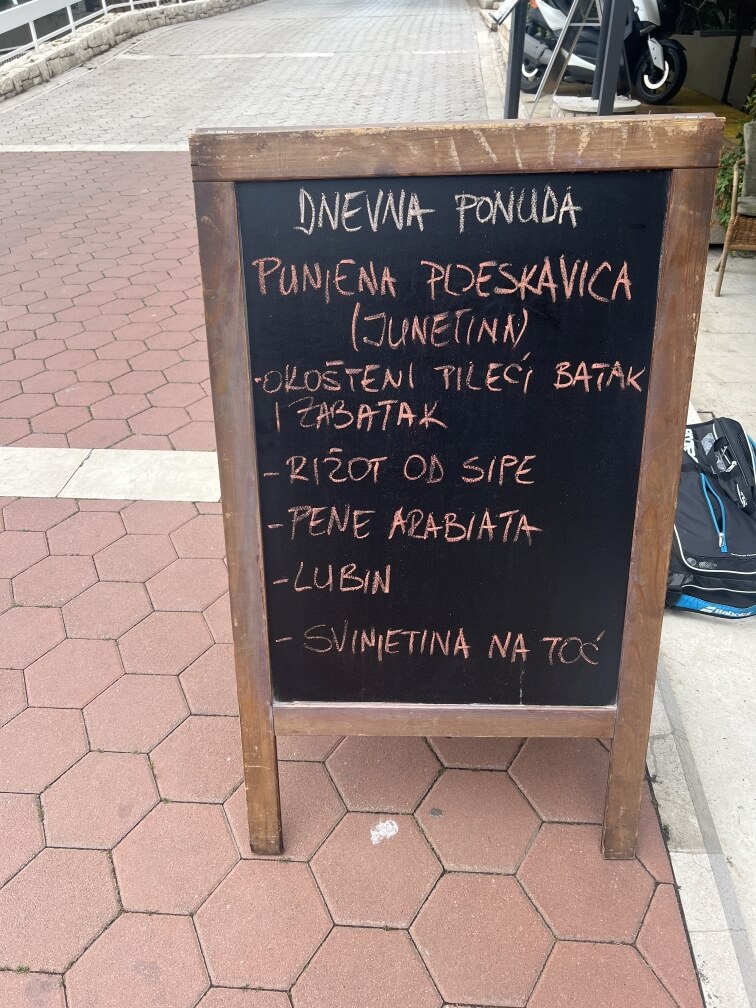 DNEVNA PONUDA
PUNJENA PLJESKAVICA
(JUNETINA)
-OKOŠTENI PILEĆI BATAK
I ZABATAK
-RIŽOT OD SIPE
-PENE ARABIATA
-LUBIN
- SVINJETINA NA TOĆ
Babolat